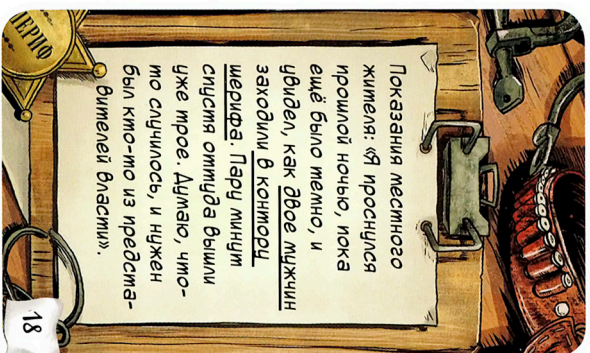 ШЕРИФ
Показания местного
жителя: «Я проснулся
прошлой ночью, пока
ещё было темно, и
увидел, как двое мужчин
заходили в контору
шерифа. Пару минут
спустя оттуда вышли
уже трое. Думаю, что-
то случилось, и нужен
был кто-то из предста-
вителей власти».
18